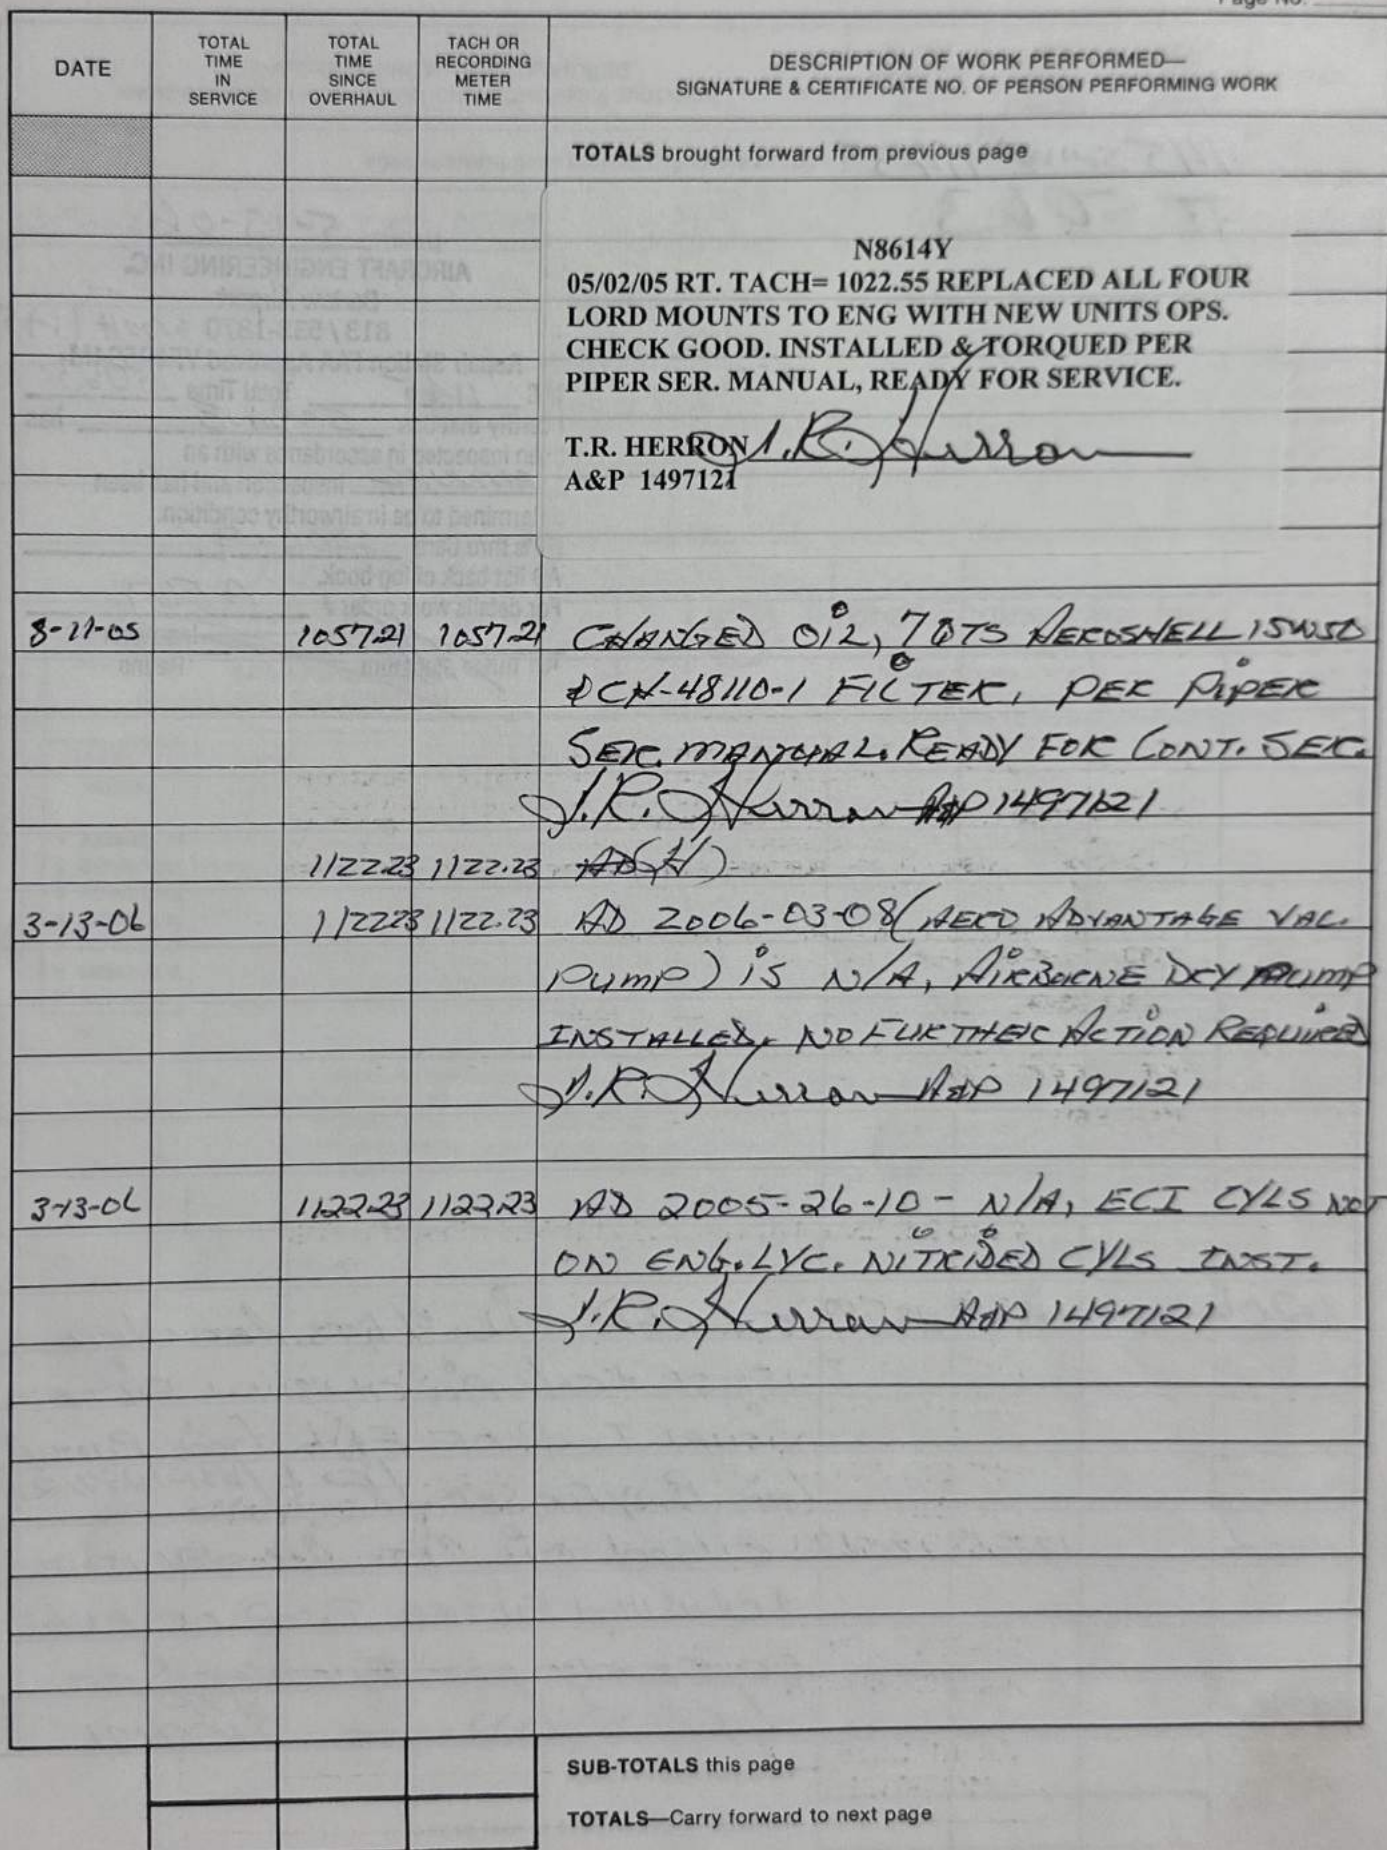 Page No.
DATE
TOTAL TIME IN SERVICE
TOTAL TIME SINCE OVERHAUL
TACH OR RECORDING METER TIME
DESCRIPTION OF WORK PERFORMED—
SIGNATURE & CERTIFICATE NO. OF PERSON PERFORMING WORK
TOTALS brought forward from previous page
N8614Y
05/02/05 RT. TACH= 1022.55 REPLACED ALL FOUR
LORD MOUNTS TO ENG WITH NEW UNITS OPS.
CHECK GOOD. INSTALLED & TORQUED PER
PIPER SER. MANUAL, READY FOR SERVICE.
T.R. HERRON T.R. Herron
A&P 1497121
8-11-05 1057.21 1057.21 CHANGED OIL, 7 QTS AEROSHELL 15W50
& CH-48110-1 FILTER, PER PIPER
SER. MANUAL. READY FOR CONT. SER.
T.R. Herron A&P 1497121
1122.23 1122.23
3-13-06 1122.23 1122.23 AD 2006-03-08 (AERO ADVANTAGE VAC.
PUMP) IS N/A, AIRBORNE DRY PUMP
INSTALLED. NO FURTHER ACTION REQUIRED
T.R. Herron A&P 1497121
3-13-06 1122.23 1122.23 AD 2005-26-10 - N/A, ECI CYLS NOT
ON ENG. LYC. NITRIDED CYLS INST.
T.R. Herron A&P 1497121
SUB-TOTALS this page
TOTALS—Carry forward to next page